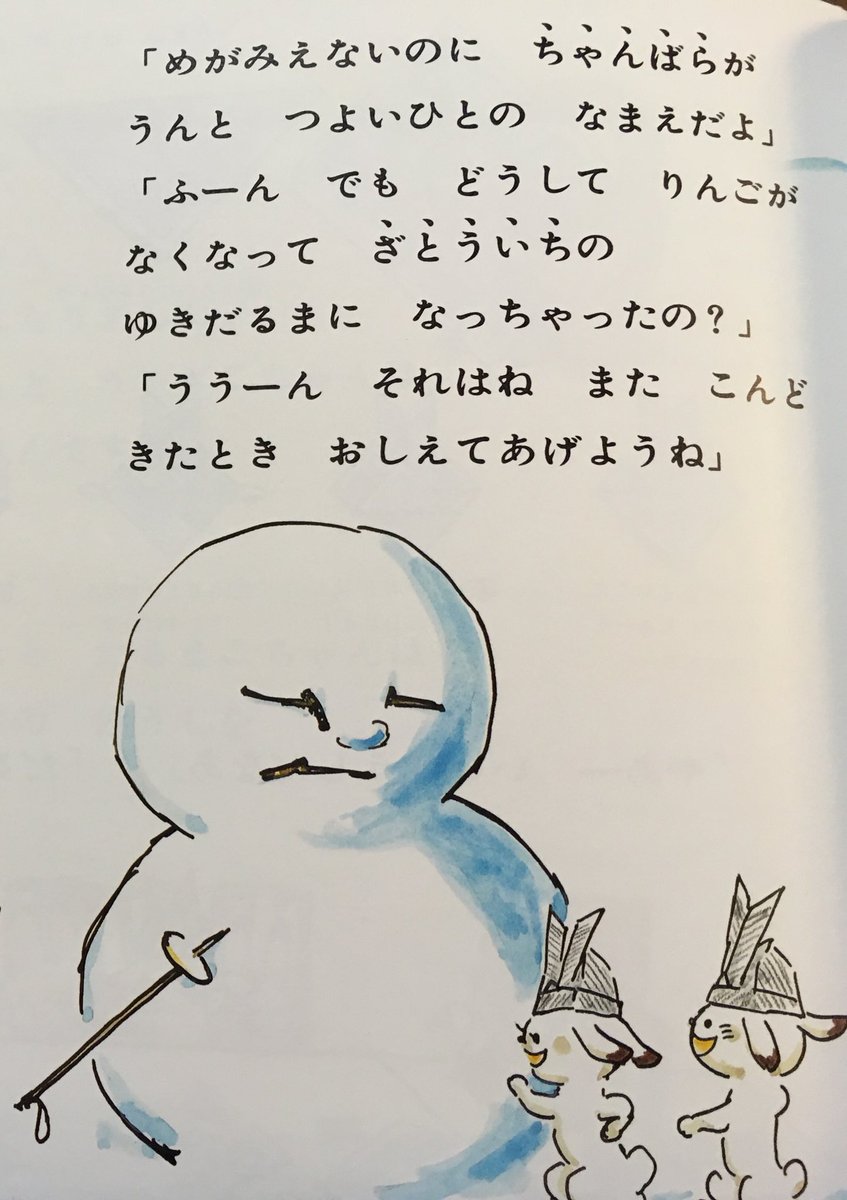 「めがみえないのに　ちゃんばらが
うんと　つよいひとの　なまえだよ」
「ふーん　でも　どうして　りんごが
なくなって　ざとういちの
ゆきだるまに　なっちゃったの？」
「ううーん　それはね　また　こんど
きたとき　おしえてあげようね」